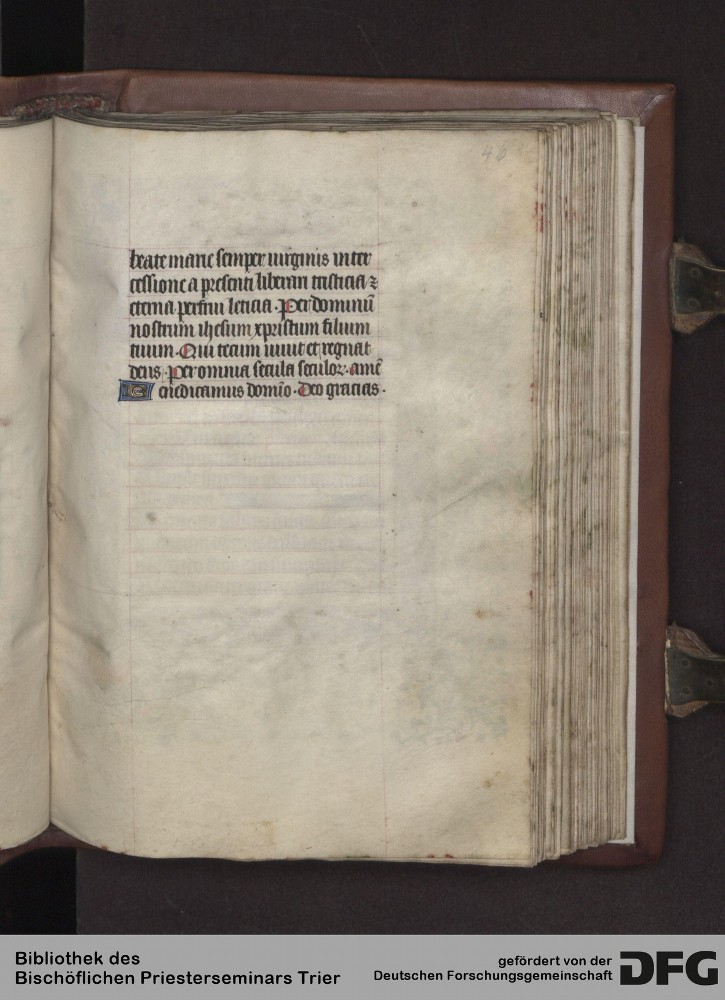 46
beate marie semper uirginis inter
cessione a presenti liberari tristicia ⁊
eterna perfrui leticia. Per dominū
nostrum ihesum xpristum filium
tuum. Qui tecum uiuit et regnat
deus. Per omnia secula seculoꝝ. amē
Benedicamus domīo. Deo gracias.
Bibliothek des
Bischöflichen Priesterseminars Trier
gefördert von der
Deutschen Forschungsgemeinschaft
DFG